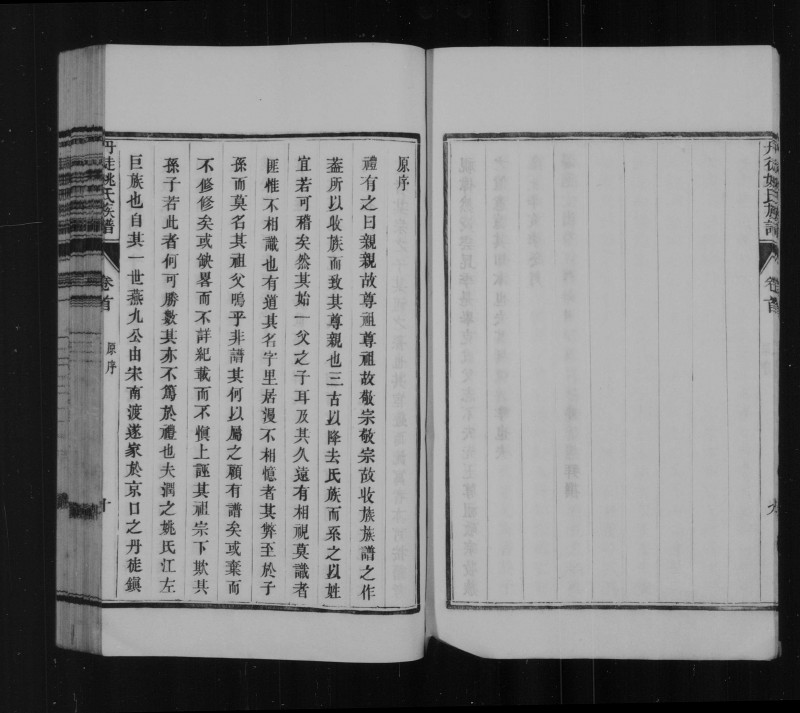 丹徒姚氏族譜
九
原序
禮有之曰親親故尊祖尊祖故敬宗敬宗故收族族譜之作
葢所以收族而致其尊親也三古以降去氏族而系之以姓
宜若可稽矣然其始一父之子耳及其久遠有相視莫識者
匪惟不相識也有道其名字里居漫不相憶者其弊至於子
孫而莫名其祖父嗚乎非譜其何以屬之顧有譜矣或棄而
不修修矣或缺畧而不詳紀載而不慎上誣其祖宗下欺其
孫子若此者何可勝數其亦不篤於禮也夫潤之姚氏江左
巨族也自其一世燕九公由宋南渡遂家於京口之丹徒鎭
丹徒姚氏族譜
卷首
原序
十